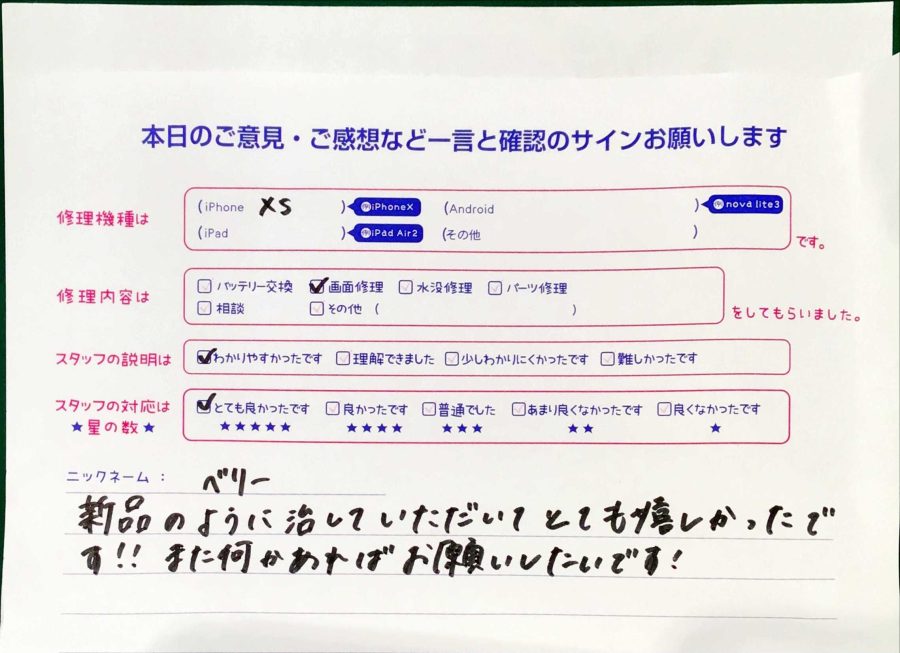 本日のご意見・ご感想など一言と確認のサインお願いします
修理機種は
(iPhone XS ) 例 iPhoneX (Android ) 例 nova lite3
(iPad ) 例 iPad Air2 (その他 )
です。
修理内容は
バッテリー交換 画面修理 水没修理 パーツ修理
相談 その他 ( )
をしてもらいました。
スタッフの説明は
わかりやすかったです 理解できました 少しわかりにくかったです 難しかったです
スタッフの対応は
★星の数★
とても良かったです 良かったです 普通でした あまり良くなかったです 良くなかったです
★★★★★ ★★★★ ★★★ ★★ ★
ニックネーム : ベリー
新品のように治していただいてとても嬉しかったで
す!! また何かあればお願いしたいです!